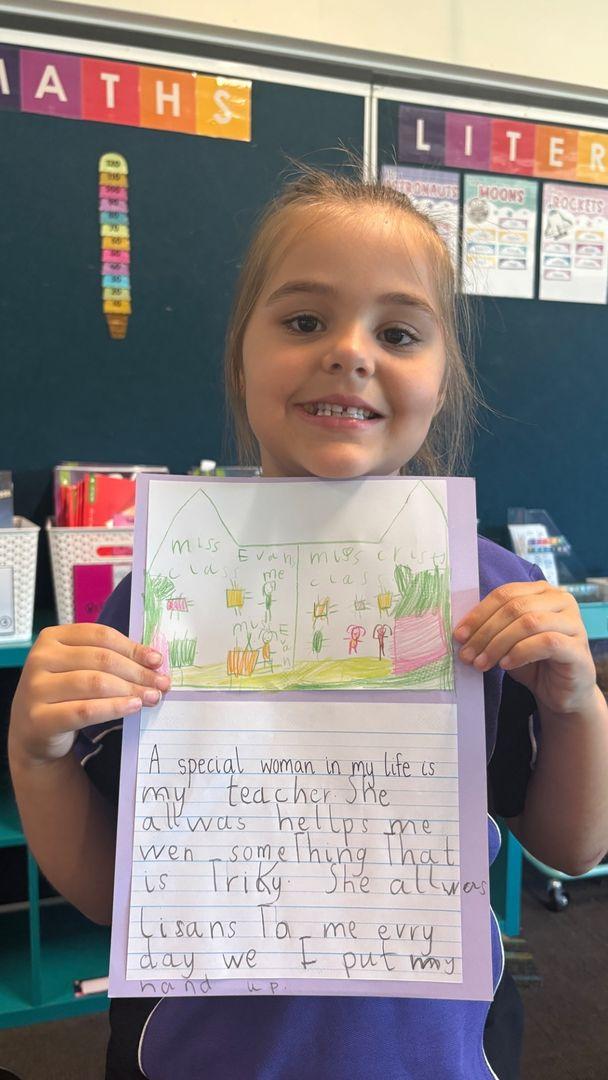 MATHS
LITER
ASTRONAUTS
MOONS
ROCKETS
miss Evans miss crist
class class
me
miss Evan
A special woman in my life is
my teacher. She
allwas hellps me
wen someThing That
is Triky. She allwas
Lisans To me evry
day we I put my
hand up.